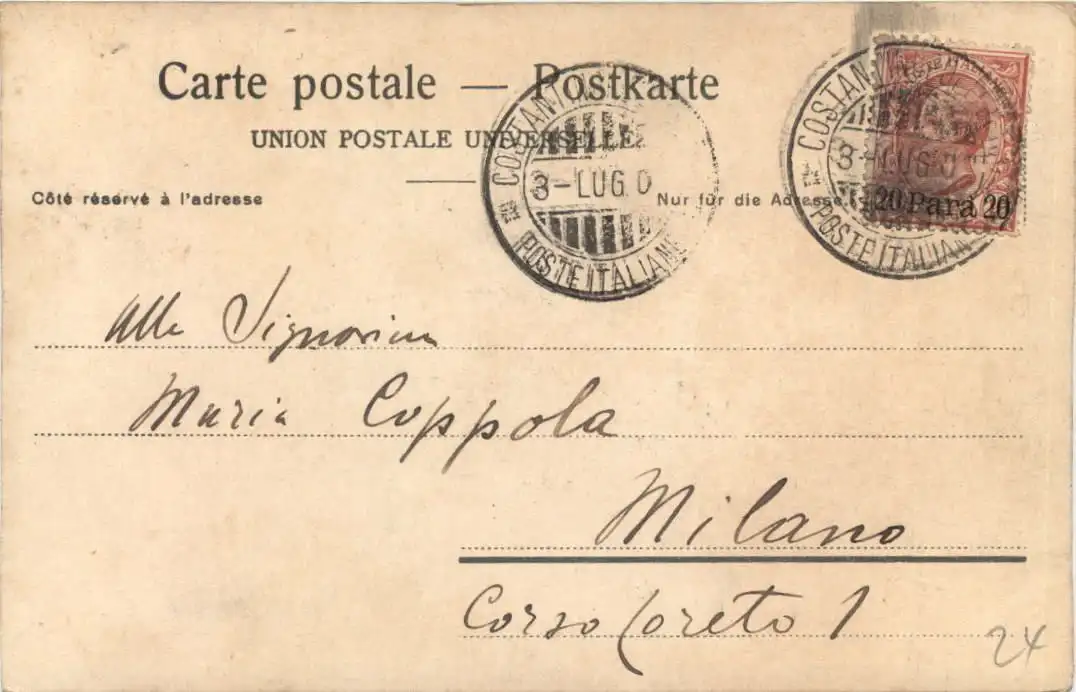 Carte postale — Postkarte
UNION POSTALE UNIVERSELLE
Côté réservé à l'adresse
Nur für die Adresse
COSTANTI
3-LUG 0
POSTE ITALIANE
COSTANTI
3-LUG 0
POSTE ITALIAN
20 Para 20
Alla Signorina
Maria Coppola
Milano
Corso Loreto 1
24